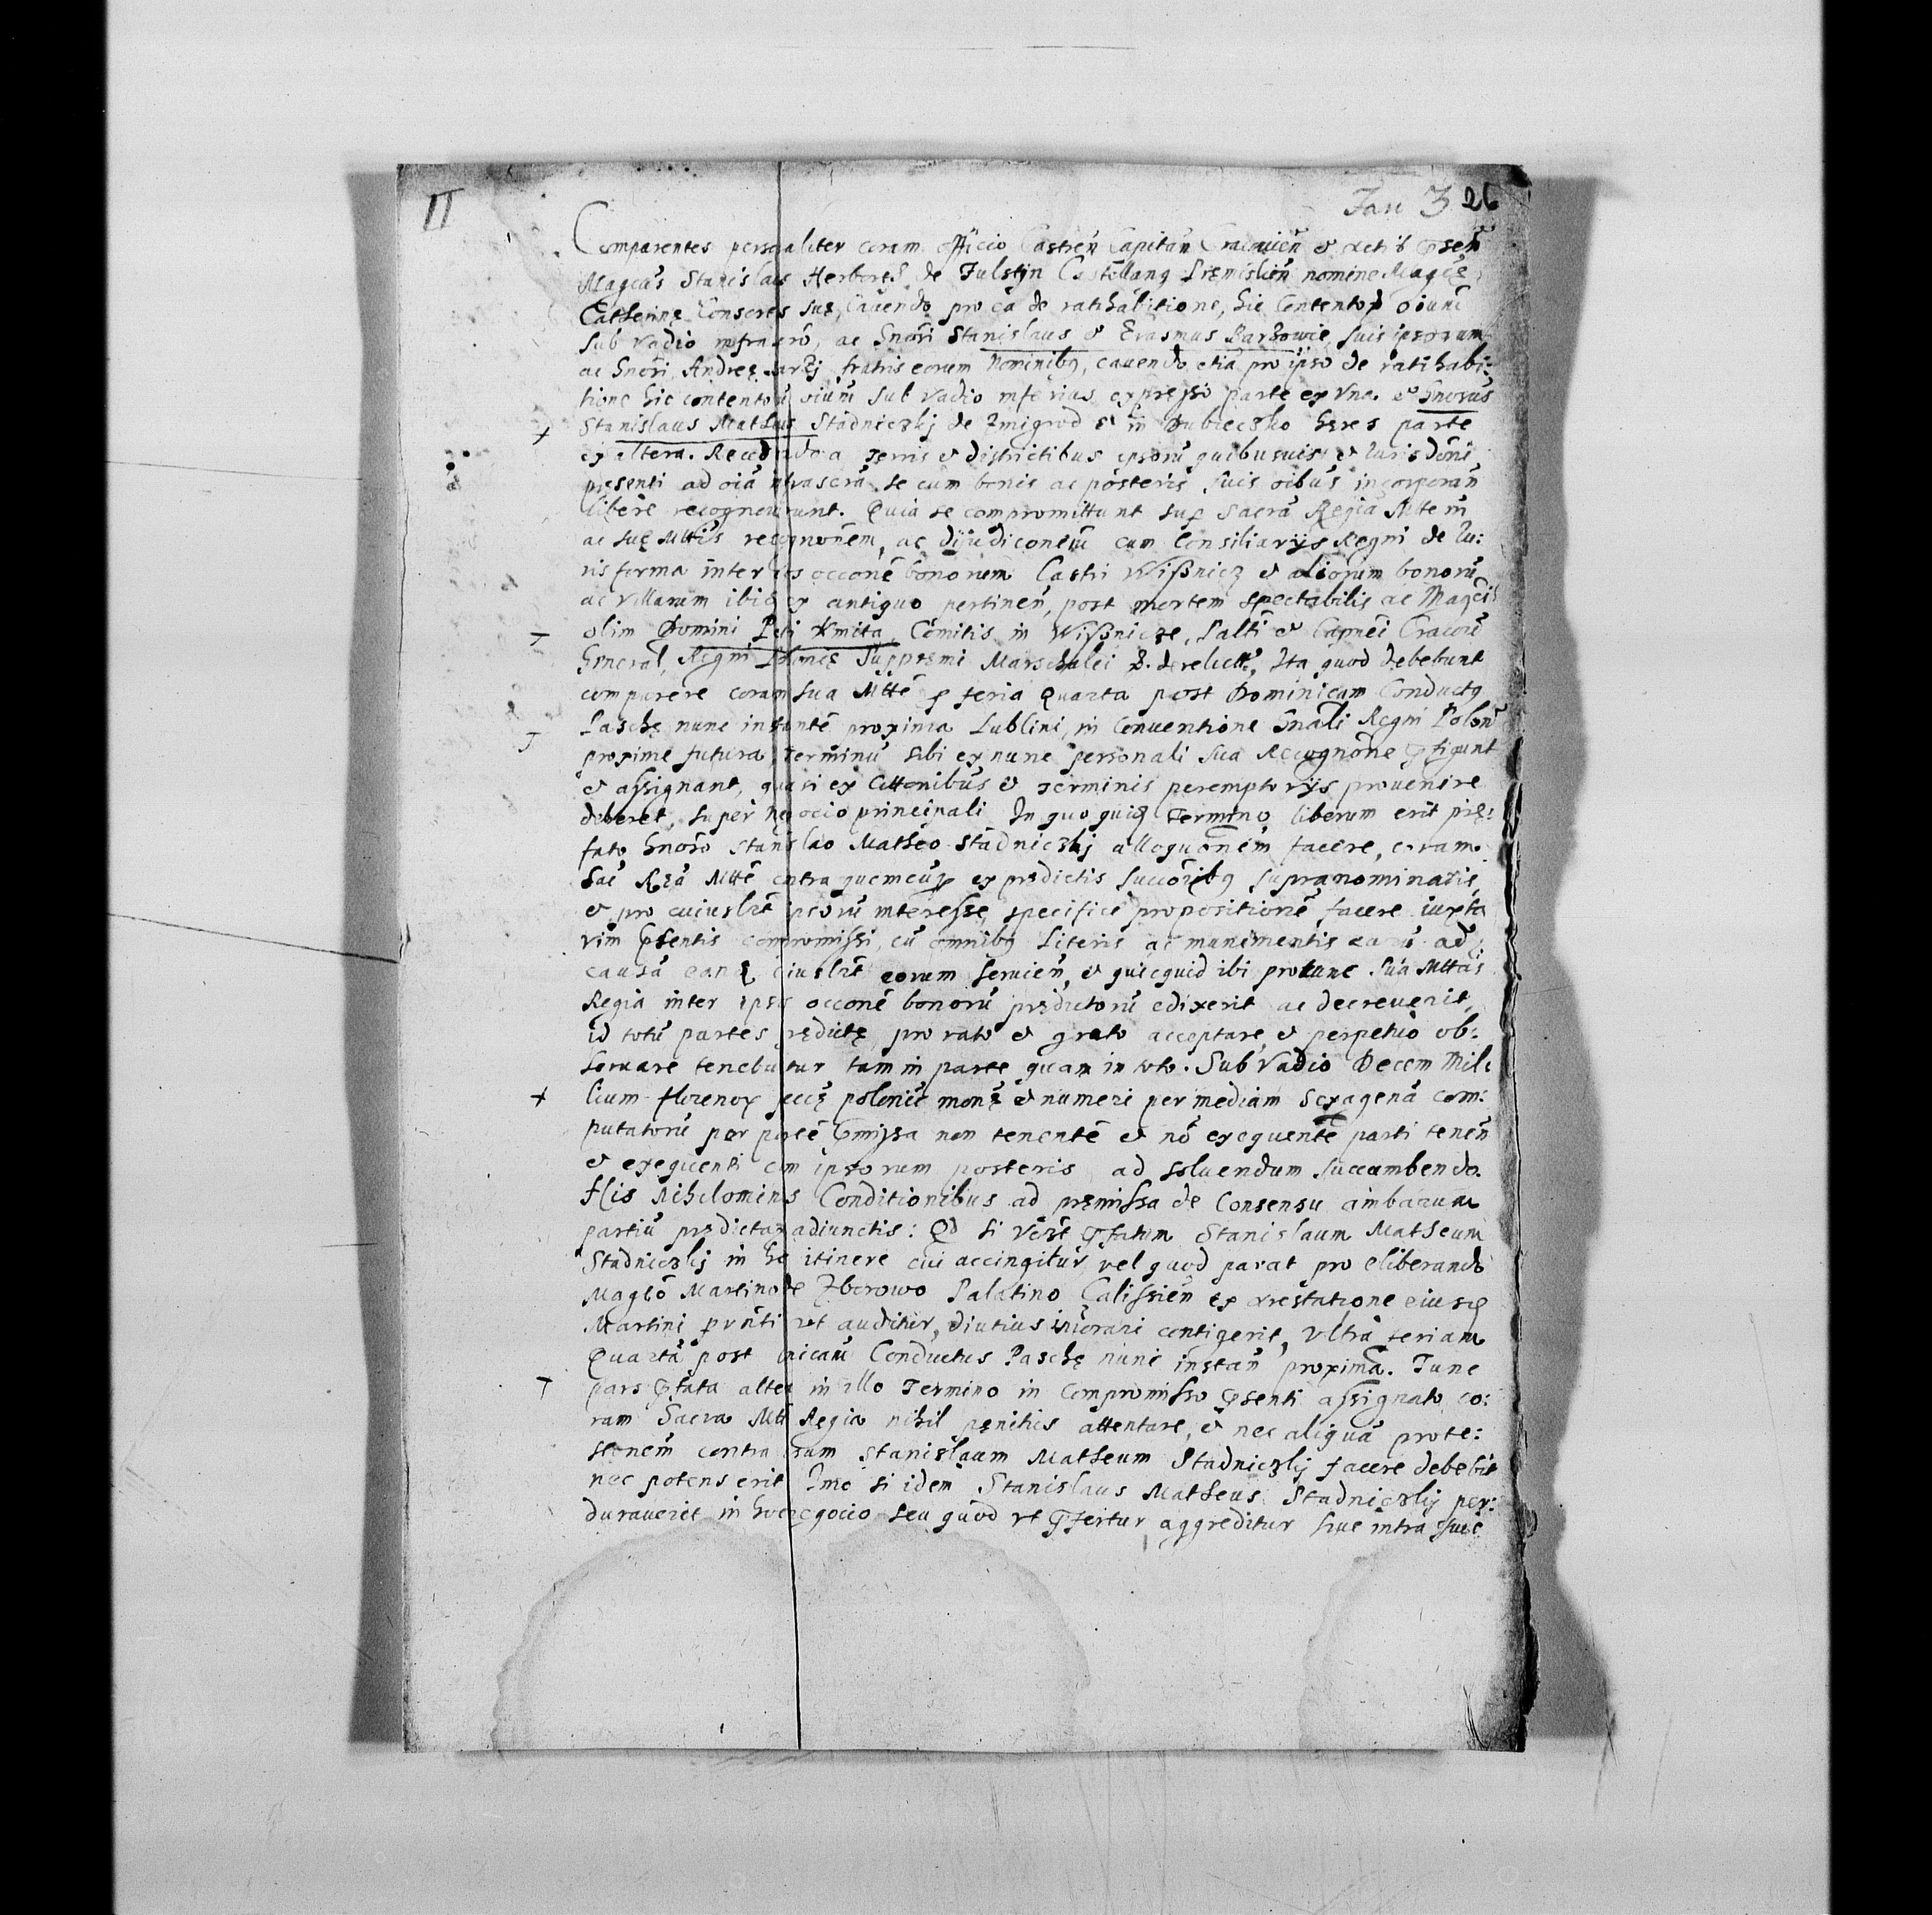 II
Jan 3 26
Comparentes personaliter coram officio Castreñ Capitañ Cracouieñ et actis
Magcus Stanislaus Herbort de Fulstyn Castellanus Premislieñ nomine Magcę
Catherinę Consortis suę, Cauendo pro ea de ratihabitione, hic Contentor oium
sub Vadio infrascro, ac Gnosi Stanislaus et Erasmus Barzowie, suis ipsorum
ac Gnosi Andreę Barzj fratris eorum Nominibus, cauendo etia pro ipso de ratihabi:
tione hic contentoru oium sub vadio inferius expresso parte ex Vna. et Gnosus
Stanislaus Matheus Stadniczkj de Zmigrod et in Dubieczko heres parte
ex altera. Recedendo a Terris et districtibus ipsoru quibusuis et Jurisdoni
presenti ad oia infrascra se cum bonis ac posteris suis oibus incorporañ
libere recognouerunt. Quia se compromittunt sup Sacra Regia Mtem
ac suę Mttis recognonem, ac dijudiconem cum Consiliarijs Regni de Ju:
ris forma inter eos occone bonorum Castri Wißnicz et aliorum bonoru
ac Villarum ibid ex antiquo pertineñ, post mortem spectabilis ac Magci
olim Domini Petri Kmita, Comitis in Wißnicze, Palti et Capnei Cracoui
General, Regni Polonię Suppremi Marschalci &. derelict, Ita quod debebunt
comparere coram sua Mtte feria Quarta post Dominicam Conductus
Paschę nunc instante proxima Lublini, in Conuentione Gnali Regni Polon
proxime futura, Terminu sibi ex nunc personali sua Recognone pfigunt
et assignant, quasi ex Cittonibus et Terminis peremptorijs prouenire
deberet, super negocio principali In quo quid Termino liberum erit prę:
fato Gnoso Stanislao Matheo Stadniczkj alloquonem facere, coram
Sac Rea Mtte contra quemcuq ex prędictis succoribus supranominatis
et pro cuiuslibt ipsoru interesse, specifice propositione facere iuxta
vim psentis compromissi, cu omnibus Literis ac munimentis ad
causa eand cuiuslibt eorum seruieñ, et quicquid ibi protunc sua Mttas
Regia inter ipsos occone bonoru prędictoru edixerit ac decreuerit,
id totu partes prędictę, pro rato et grato acceptare, et perpetuo ob:
seruare tenebuntur tam in parte quam in toto. Sub Vadio Decem Mil:
lium florenor pecuę polonic monę et numeri per mediam sexagena com:
putatoru per parte pmissa non tenente et no exequente parti teneñ
et exequenti cum ipsorum posteris ad soluendum succumbendo.
His Nihilominus Conditionibus ad pręmissa de Consensu ambarum
partiu prędictar adiunctis: Qd si Vero pfatum Stanislaum Matheum
Stadniczkij in hoc itinere cui accingitur vel quod parat pro eliberando
Magco Martino de Zborowo Palatino Calissieñ ex arestatione eiusd
Martini prnti ut auditur, diutius morari contigerit, Vltra feriam
Quarta post dnicam Conductus Paschę nunc instañ proxima. Tunc
pars pfata altera in illo Termino in Compromisso psenti assignato co:
ram Sacra Mtte Regia nihil penitus attentare, et nec aliqua prote:
stonem contra eum Stanislaum Matheum Stadniczkij facere debebit
nec potens erit Imo si idem Stanislaus Matheus Stadniczkij per:
durauerit in hoc negocio seu quod vt pfertur aggreditur siue intra siue